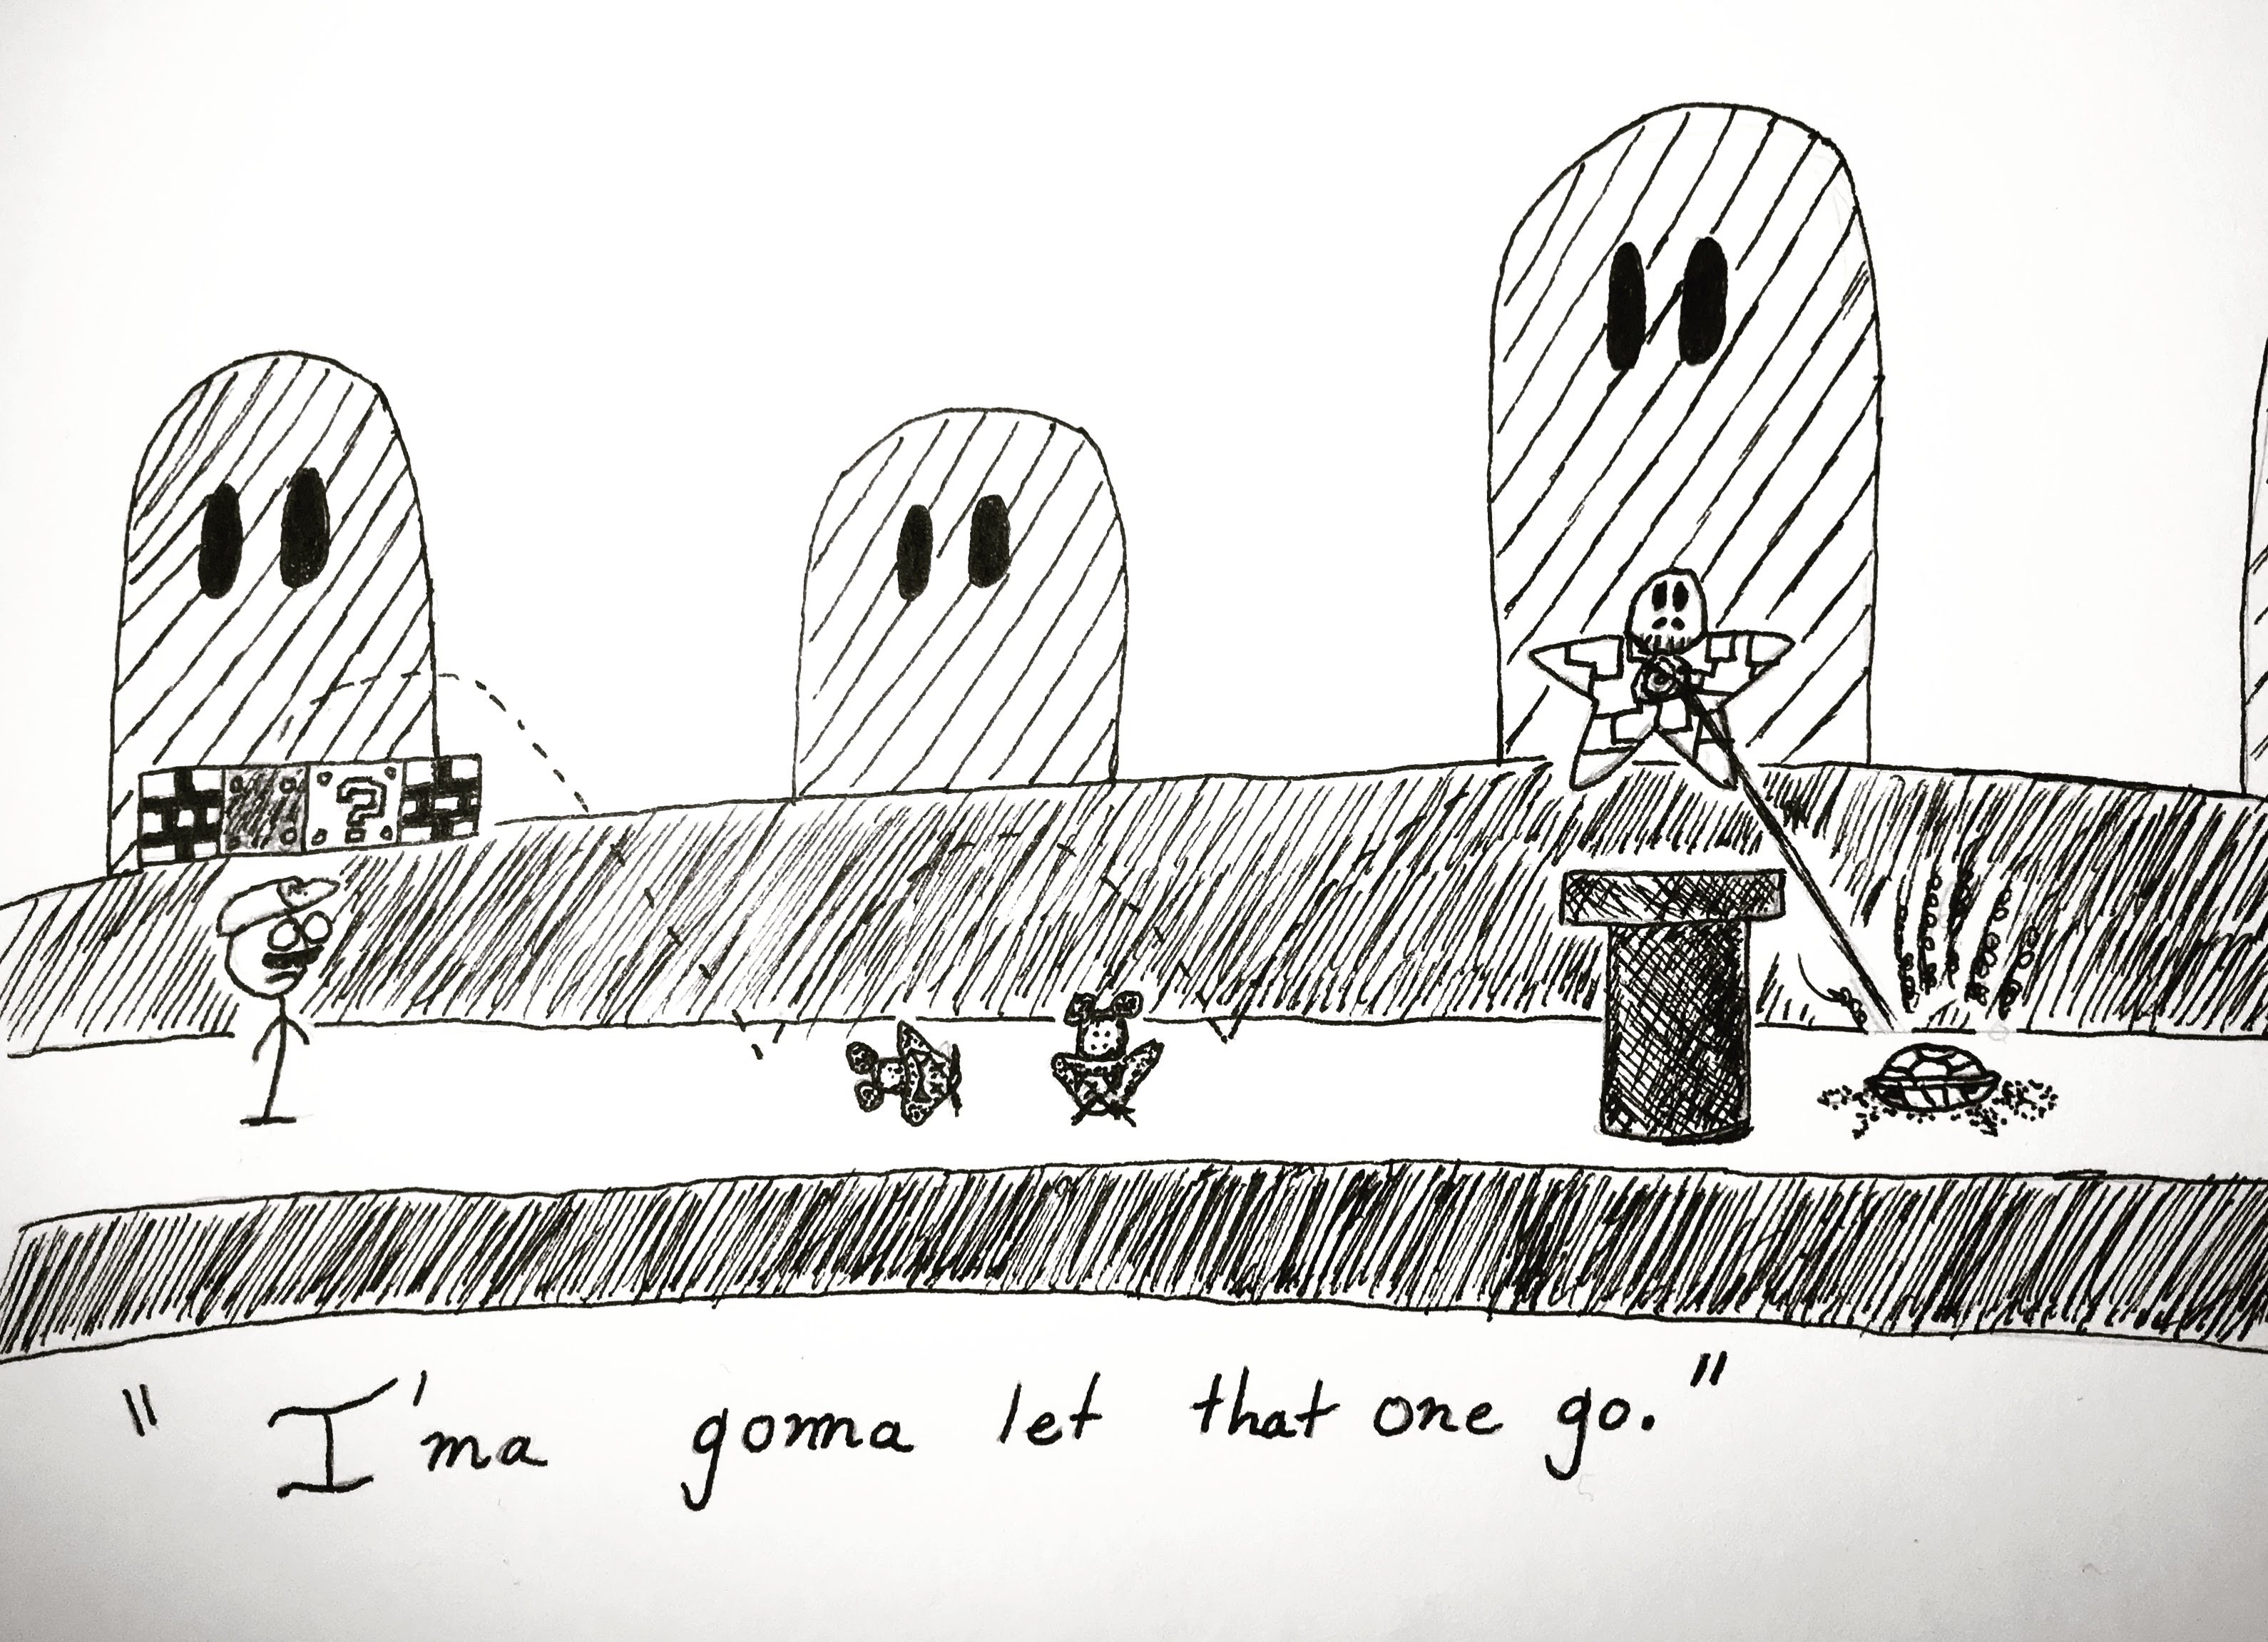 ?
"I'ma gonna let that one go."